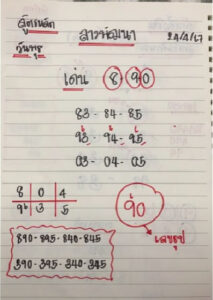 สูตรหลัก สาวพัฒนา 24/4/67
วันพุธ
เด่น 8 90
83 - 84 - 85
93 - 94 - 95
03 - 04 - 05
8 | 0 | 4
9 | 3 | 5
90
เลขธูป
890 - 895 - 840 - 845
390 - 395 - 340 - 345